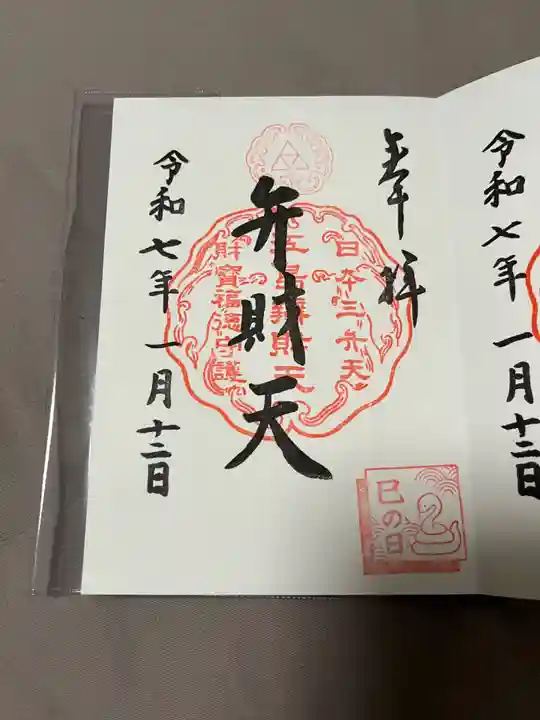 令和七年一月十二日
奉拝
弁財天
日本三弁天
財寶福徳守護
巳の日
令和七年一月十二日